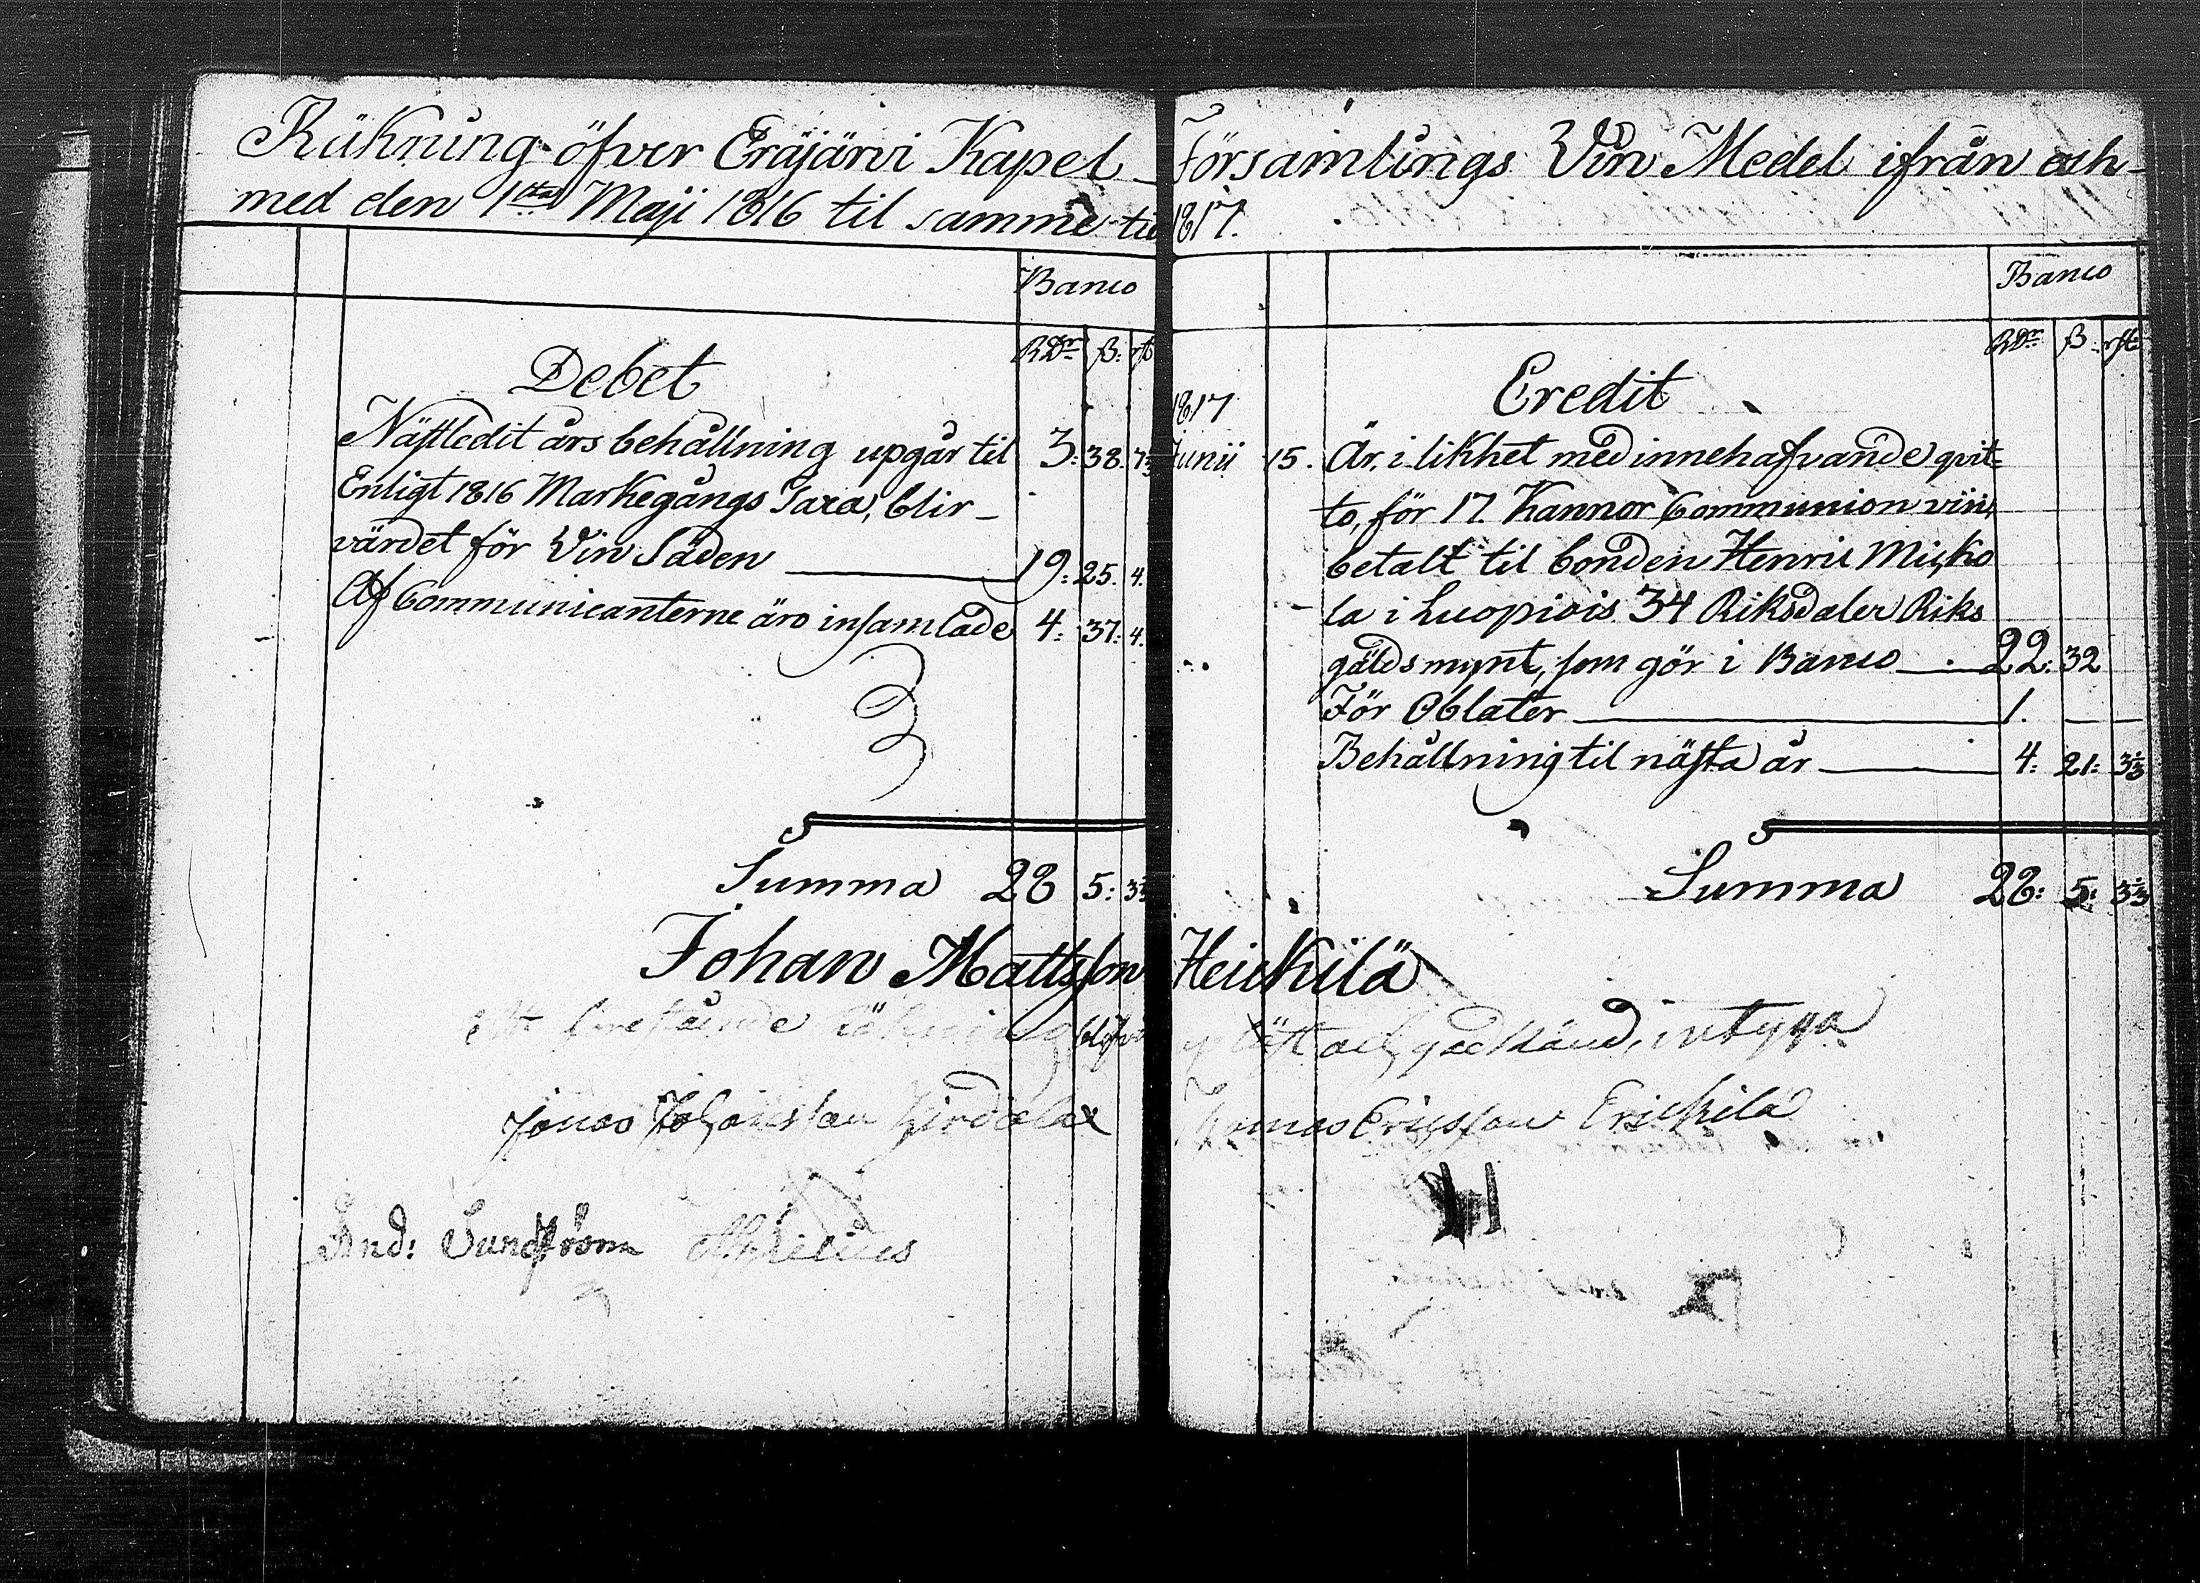 Räkning öfver Eräjärvi Kapel Församlings Vin Medel ifrån och
med den 1sta Maji 1816 til samma tid 1817.
Banco
RDr ß: rst
Debet
Nästledit års behållning upgår til 3: 38. 7⅓
Enligt 1816 Markegångs Taxa, blir
värdet för Vin Säden 19: 25. 4.
Af Communicanterne äro insamlade 4: 37: 4.
Summa 28 5: 3⅓
Banco
RDr ß rst:
Credit
1817
Junii 15. Är, i likhet med innehafvande qvit=
to, för 17. Kannor Communion vin,
betalt til bonden Henric Micko
la i Luopiois 34 Riksdaler Riks
gälds mynt, som gör i Banco 22: 32
För Oblater 1.
Behållning til nästa år 4: 21: 3⅓
Summa 28: 5: 3⅓
Johan Mattsson Heickilä
räkning blifvit upläst och godkänd, intyga
Jonas Johansson Thomas Ericsson Erickilä
And: Sundström